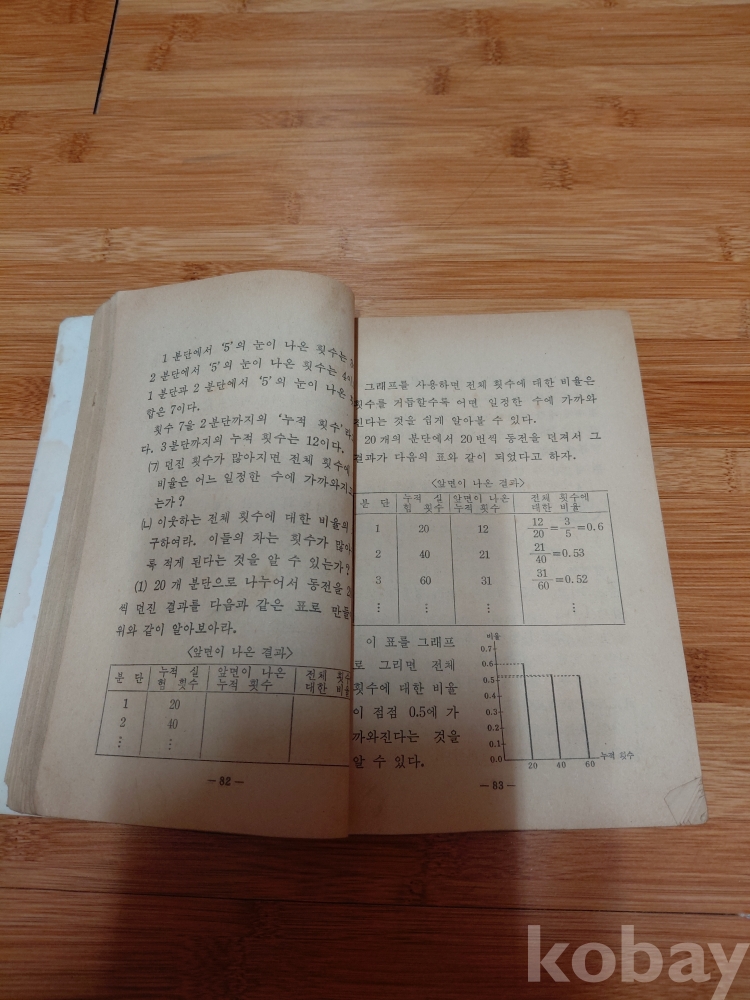 1 분단에서 '5'의 눈이 나온 횟수는
2 분단에서 '5'의 눈이 나온 횟수는 4
1 분단과 2 분단에서 '5'의 눈이 나온
합은 7이다.
횟수 7을 2분단까지의 '누적 횟수'
다. 3분단까지의 누적 횟수는 12이다.
(ㄱ) 던진 횟수가 많아지면 전체 횟수에
비율은 어느 일정한 수에 가까와지
는가?
(ㄴ) 이웃하는 전체 횟수에 대한 비율의
구하여라. 이들의 차는 횟수가 많아
록 적게 된다는 것을 알 수 있는가?
(1) 20 개 분단으로 나누어서 동전을
씩 던진 결과를 다음과 같은 표로 만들
위와 같이 알아보아라.
〈앞면이 나온 결과〉
분 단 누적 실험 횟수 앞면이 나온 누적 횟수 전체 대한
1 20
2 40
⋮ ⋮
— 82 —
그래프를 사용하면 전체 횟수에 대한 비율은
횟수를 거듭할수록 어떤 일정한 수에 가까와
진다는 것을 쉽게 알아볼 수 있다.
20개의 분단에서 20 번씩 동전을 던져서 그
결과가 다음의 표와 같이 되었다고 하자.
〈앞면이 나온 결과〉
분 단 누적 실험 횟수 앞면이 나온 누적 횟수 전체 횟수에 대한 비율
1 20 12 12/20=3/5=0.6
2 40 21 21/40=0.53
3 60 31 31/60=0.52
⋮ ⋮ ⋮ ⋮
이 표를 그래프
로 그리면 전체
횟수에 대한 비율
이 점점 0.5에 가
까와진다는 것을
알 수 있다.
비율
0.7
0.6
0.5
0.4
0.3
0.2
0.1
0.0
20 40 60 누적 횟수
— 83 —
kobay